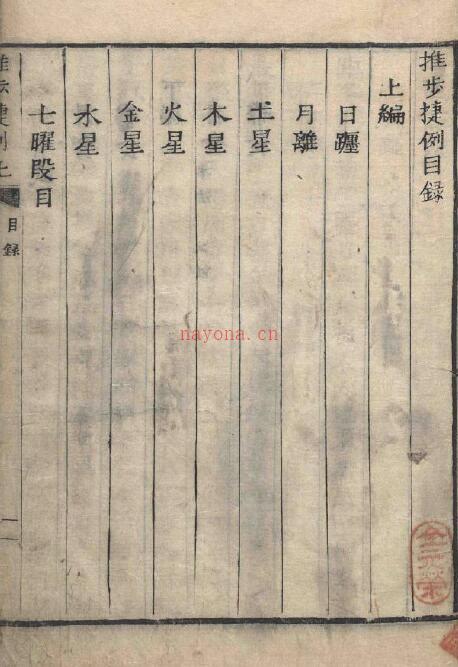 推步捷例目録
上編
日躔
月離
土星
木星
火星
金星
水星
七曜段目
推步捷例上
目録
一
nayona.cn